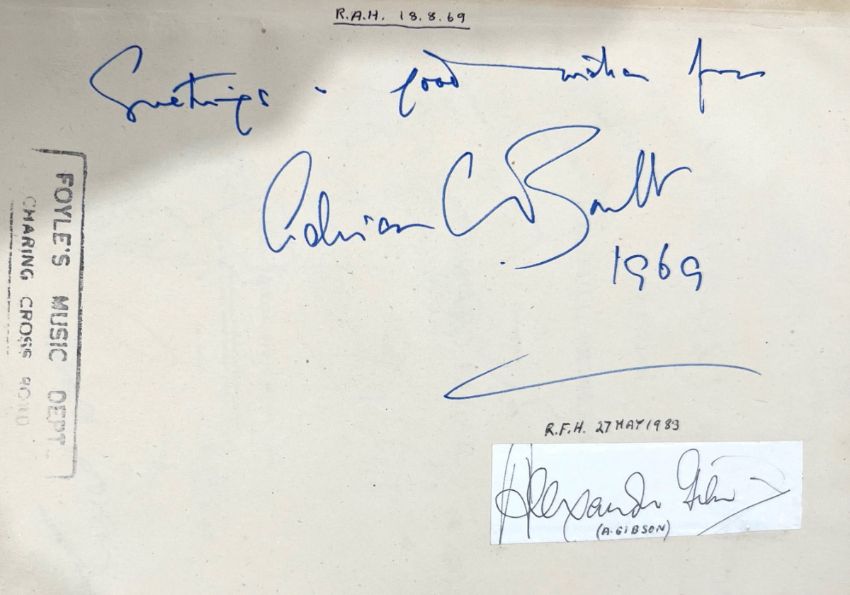 R.A.H. 18.8.69
Greetings & good wishes from
Adrian C. Boult
1969
FOYLE'S MUSIC DEPT.
CHARING CROSS ROAD
R.F.H. 27 MAY 1983
Alexander Gibson
(A. GIBSON)